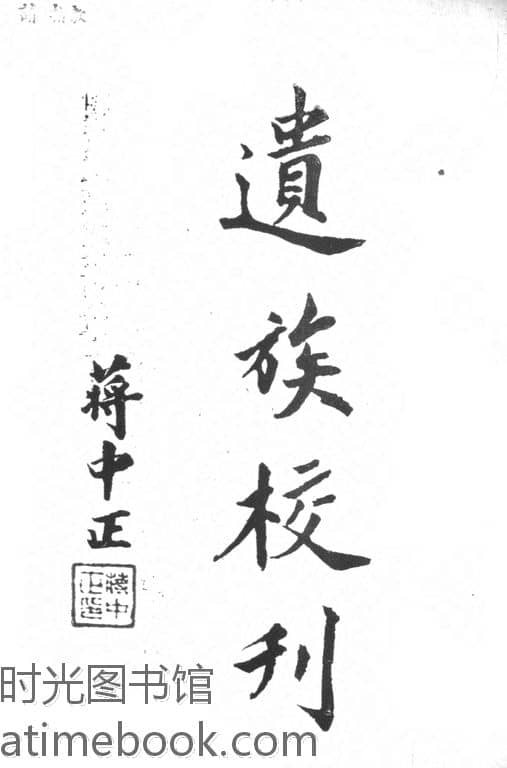 遺族校刊
蔣中正
蔣中
正印
时光图书馆
atimebook.com